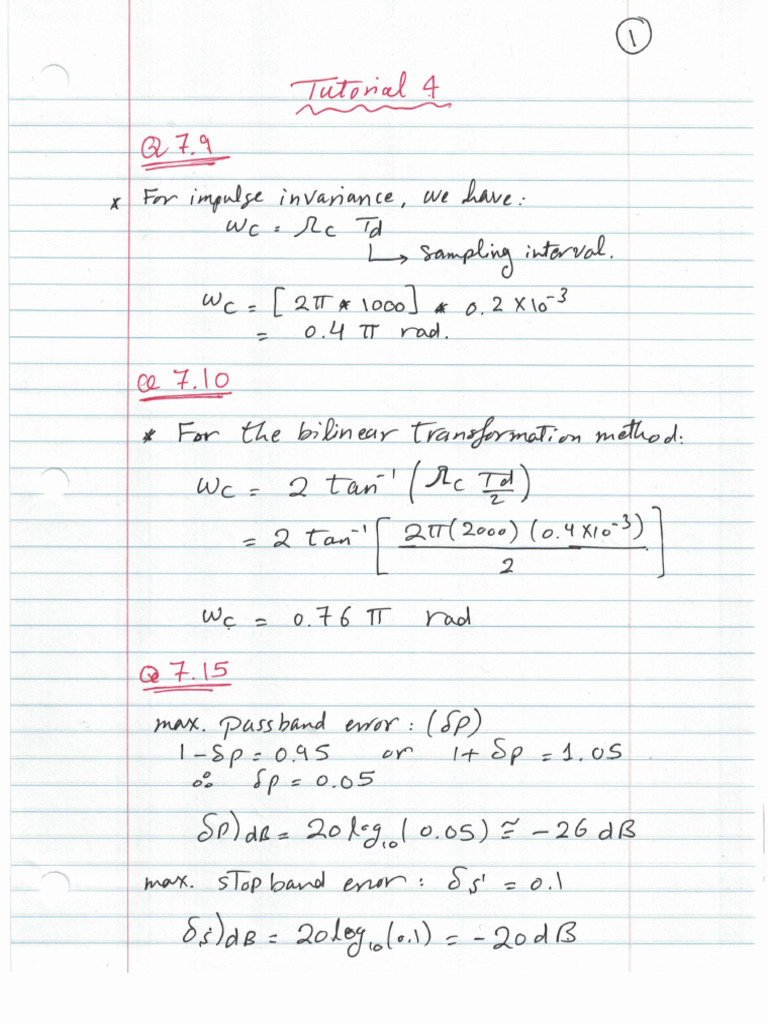 1
Tutorial 4
Q 7.9
* For impulse invariance, we have:
ωc = Ωc Td
↳ sampling interval.
ωc = [2π * 1000] * 0.2 × 10⁻³
= 0.4 π rad.
Q 7.10
* For the bilinear transformation method:
ωc = 2 tan⁻¹ (Ωc Td/2)
= 2 tan⁻¹ [2π(2000)(0.4×10⁻³)/2]
ωc = 0.76 π rad
Q 7.15
max. passband error : (δp)
1 - δp = 0.95 or 1 + δp = 1.05
∴ δp = 0.05
δp)dB = 20 log₁₀(0.05) ≅ -26 dB
max. stopband error : δs = 0.1
δs)dB = 20 log₁₀(0.1) = -20 dB